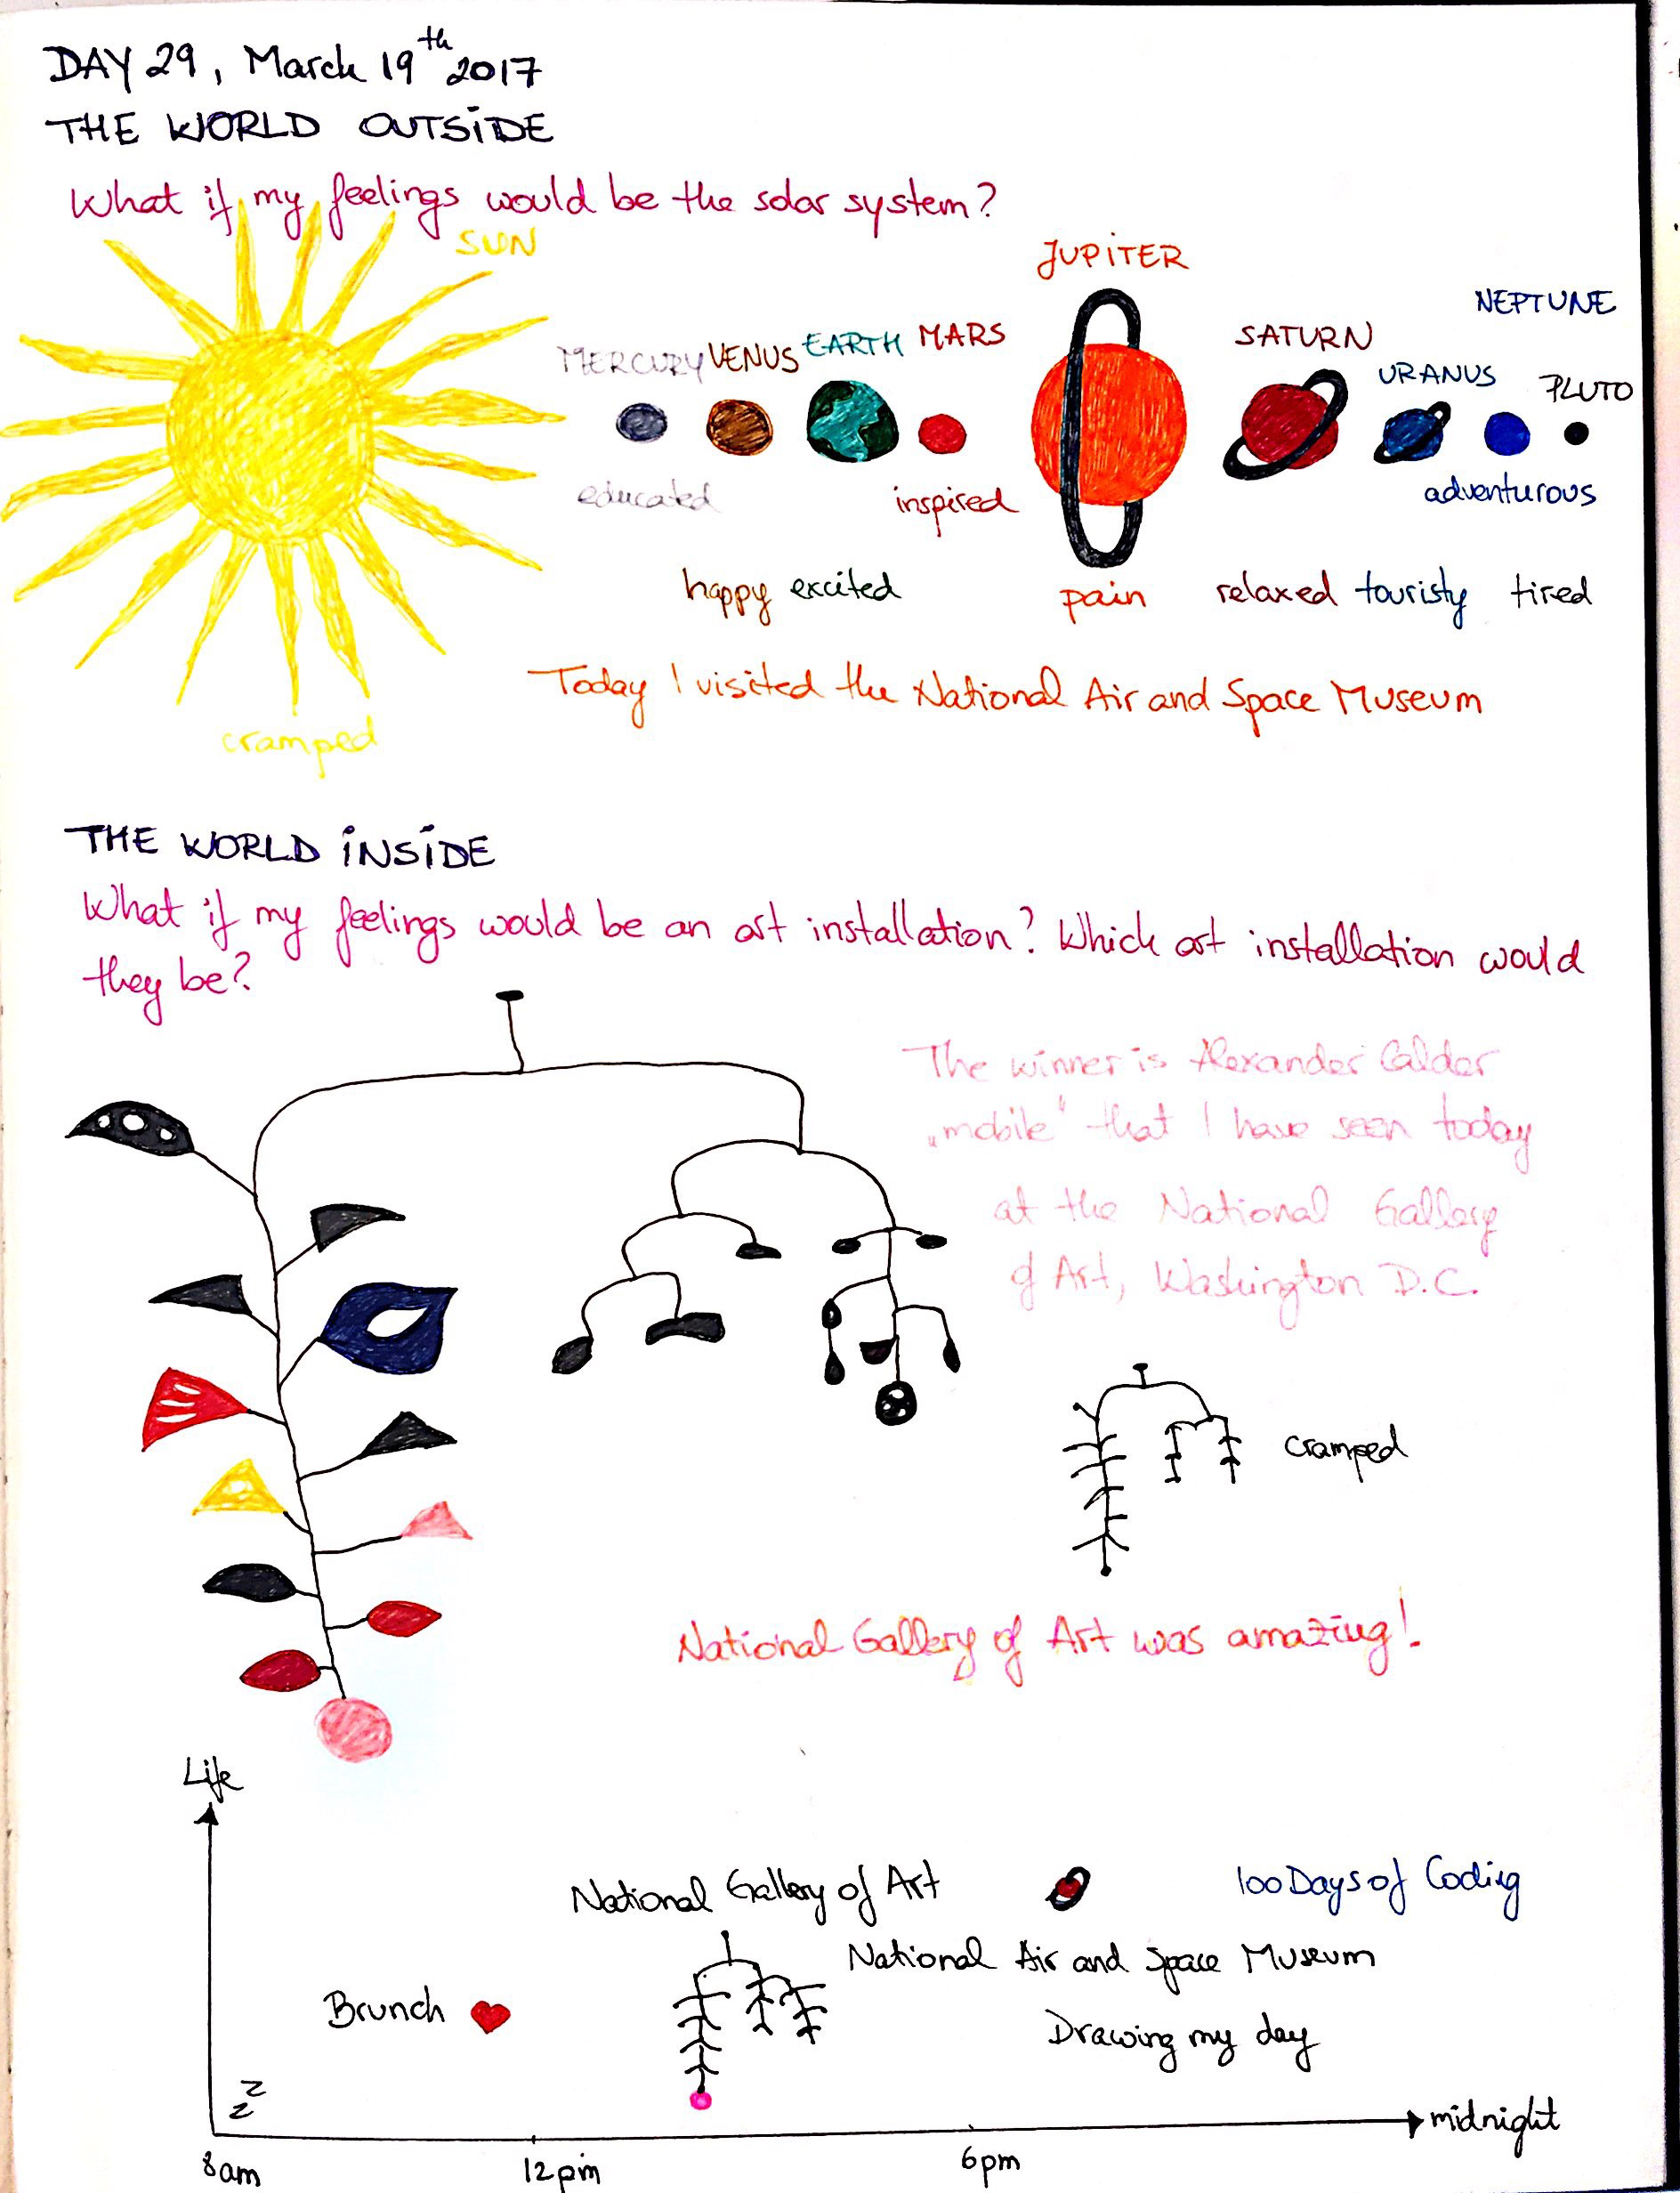 DAY 29, March 19th 2017
THE WORLD OUTSIDE
What if my feelings would be the solar system?
SUN
MERCURY VENUS EARTH MARS JUPITER SATURN URANUS NEPTUNE PLUTO
educated inspired adventurous
happy excited pain relaxed touristy tired
Today I visited the National Air and Space Museum
cramped
THE WORLD INSIDE
What if my feelings would be an art installation? Which art installation would
they be?
The winner is Alexander Calder
„mobile" that I have seen today
at the National Gallery
of Art, Washington D.C.
cramped
National Gallery of Art was amazing!
Life
National Gallery of Art
100 Days of Coding
National Air and Space Museum
Brunch
Drawing my day
z
z
midnight
8am 12pm 6pm